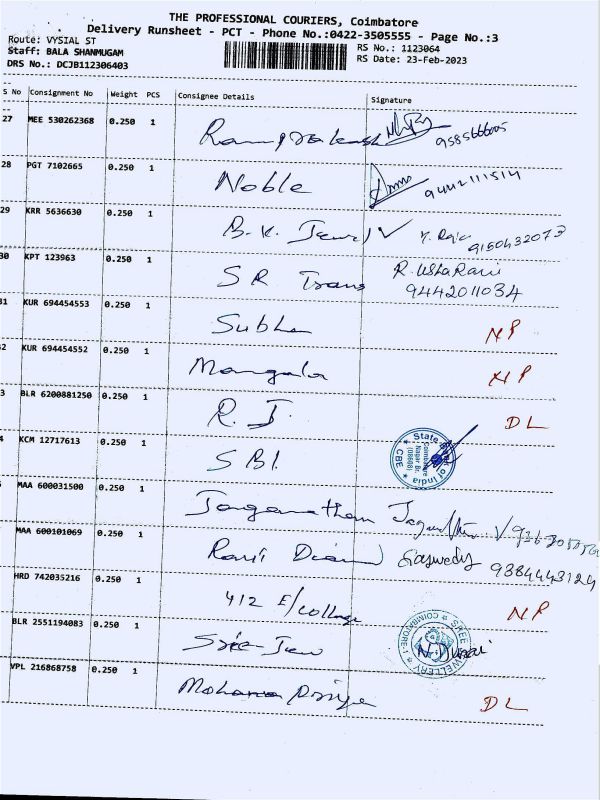 THE PROFESSIONAL COURIERS, Coimbatore
Delivery Runsheet - PCT - Phone No.:0422-3505555 - Page No.:3
Route: VYSIAL ST
Staff: BALA SHANMUGAM
DRS No.: DCJB112306403
RS No.: 1123064
RS Date: 23-Feb-2023
S No Consignment No Weight PCS Consignee Details Signature
27 MEE 530262368 0.250 1 Ramprakash 9585666005
28 PGT 7102665 0.250 1 Noble 9442111514
29 KRR 5636630 0.250 1 B.K. Jewel Y. Raja 9150432073
30 KPT 123963 0.250 1 SR Trans R. UshaRani
9442011034
31 KUR 694454553 0.250 1 Subha NP
2 KUR 694454552 0.250 1 Mangala NP
3 BLR 6200881250 0.250 1 R.J. DL
4 KCM 12717613 0.250 1 SBI. State Bank of India Coimbatore Nagar Br. CBE
MAA 600031500 0.250 1 Jaganathan
MAA 600101069 0.250 1 Ravi 9384443124
HRD 742035216 0.250 1 412 E/College NP
BLR 2551194083 0.250 1 Sree Jew SREE JEWELLERY COIMBATORE-1 N. Durai
VPL 216868758 0.250 1 Mohana Priya DL